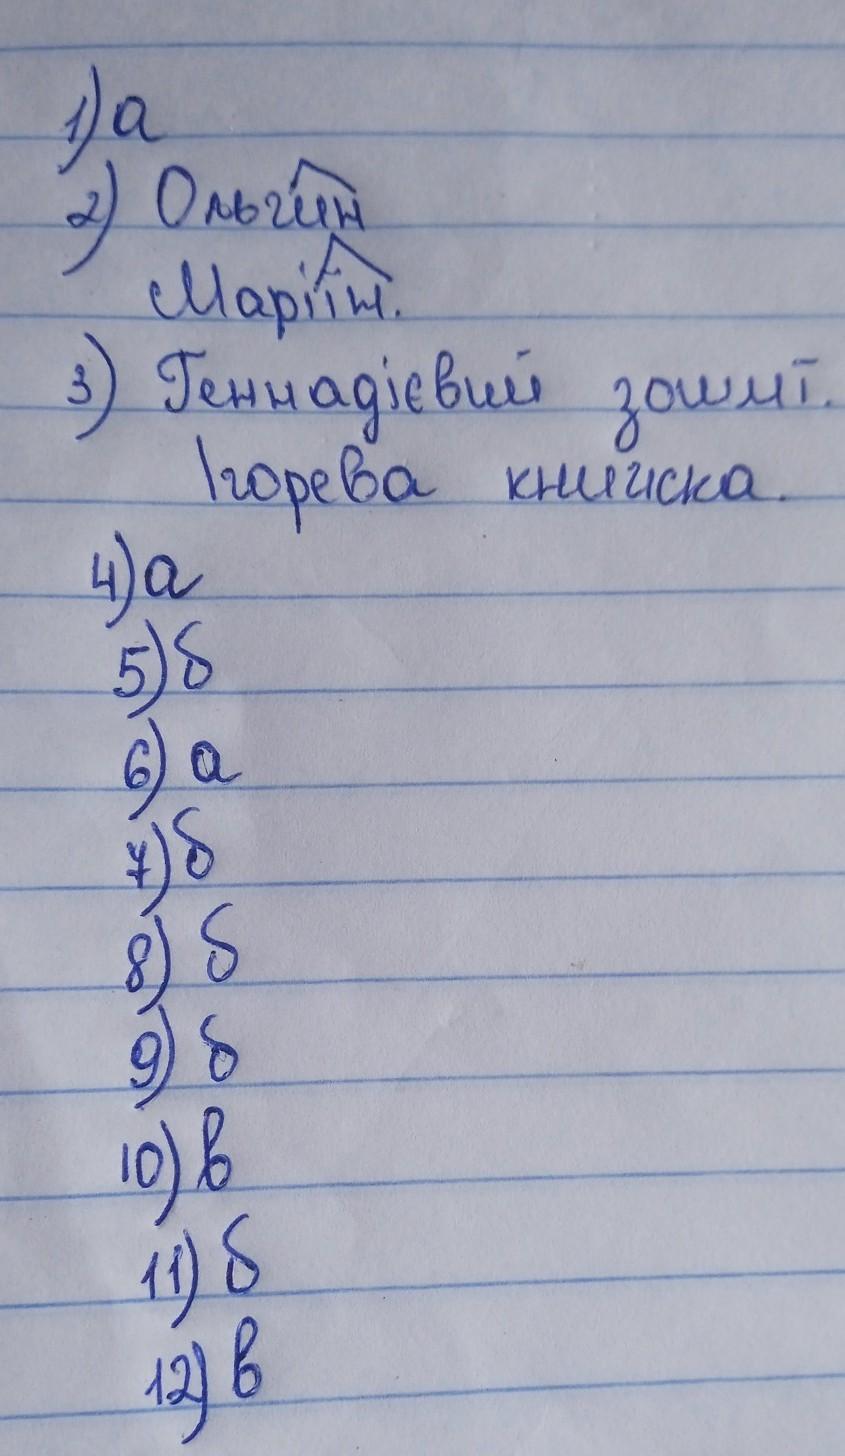 1) а
2) Ольгин
Маріїн.
3) Геннадієвий зошит.
Ігорева книжка.
4) а
5) б
6) а
7) б
8) б
9) б
10) в
11) б
12) в